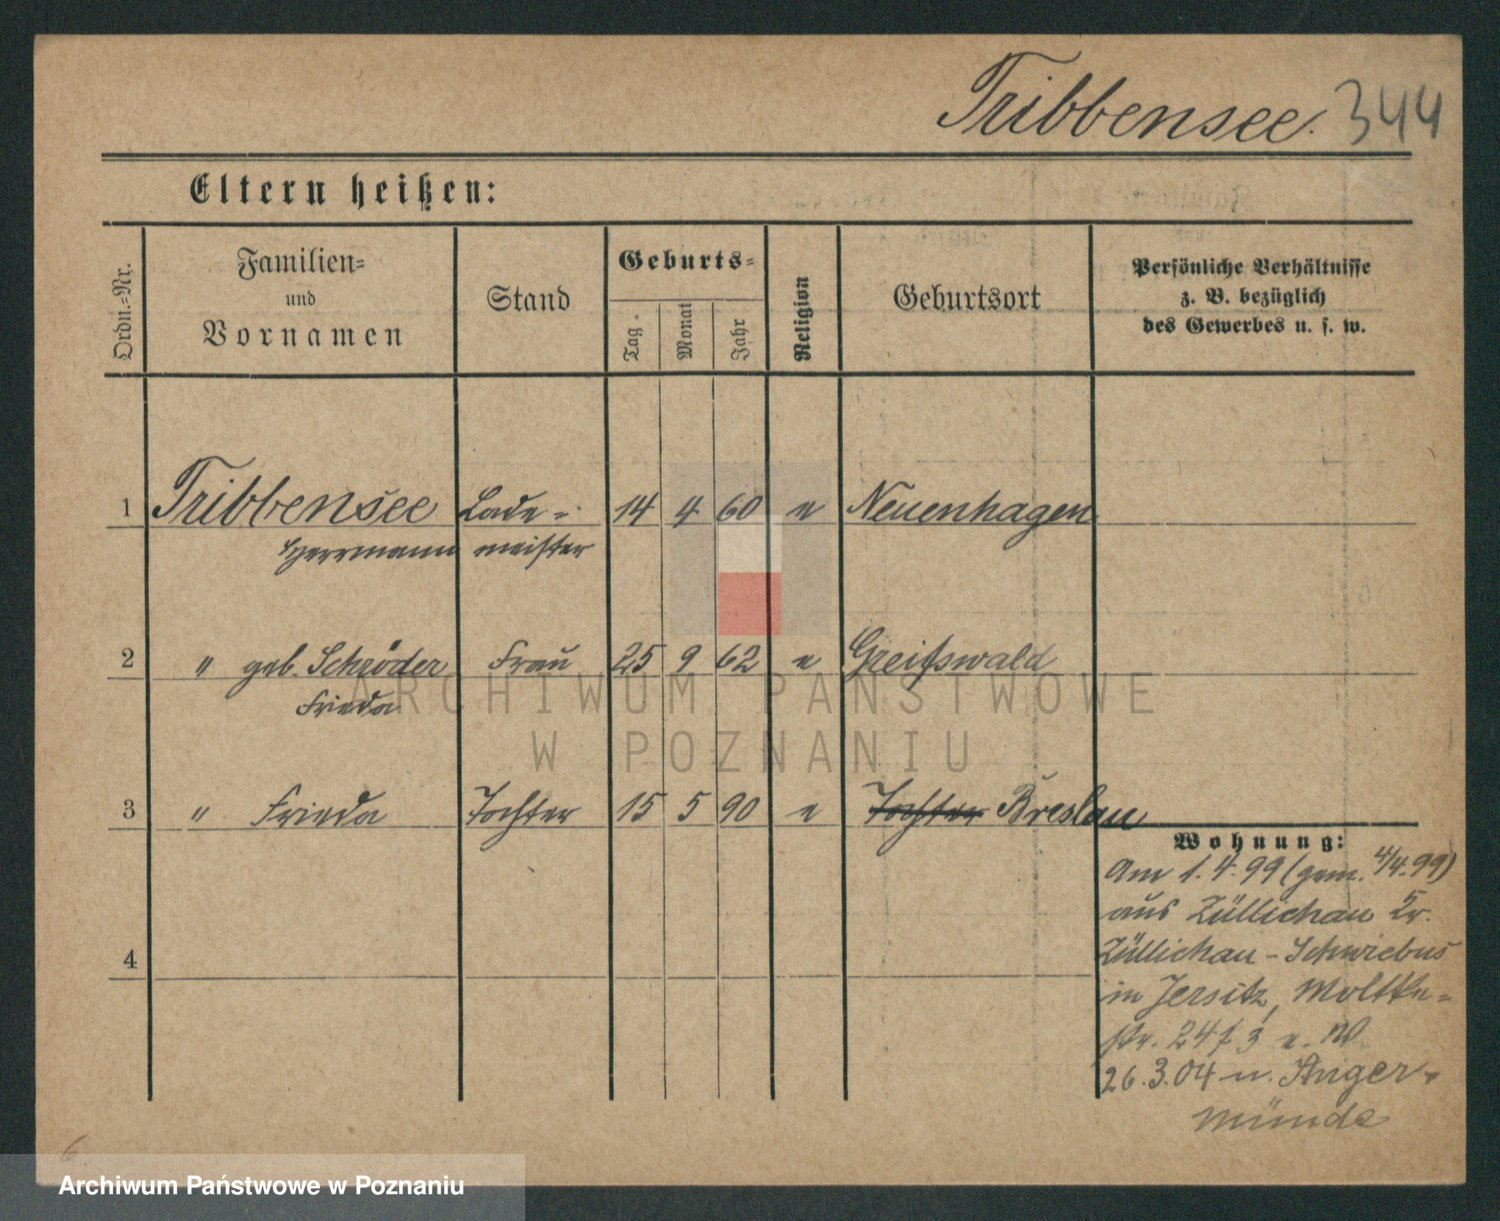 Tribbensee. 344
Eltern heißen:
Ordn.=Nr.
Familien=
und
Vornamen
Stand
Geburts=
Tag.
Monat
Jahr
Religion
Geburtsort
Persönliche Verhältnisse
z. B. bezüglich
des Gewerbes u. s. w.
1 Tribbensee Lade= 14 4 60 e Neuenhagen
Herrmann meister
2 " geb. Schröder Frau 25 9 62 e Greifswald
Frieda
3 " Frieda Tochter 15 5 90 e Tochter Breslau
Wohnung:
Am 1.4.99 (gem. 4/4.99)
aus Züllichau Kr.
Züllichau-Schwiebus
4
in Jersitz, Moltke=
str. 24
26.3.04 n. Anger=
münde
6.
ARCHIWUM PAŃSTWOWE
W POZNANIU
Archiwum Państwowe w Poznaniu